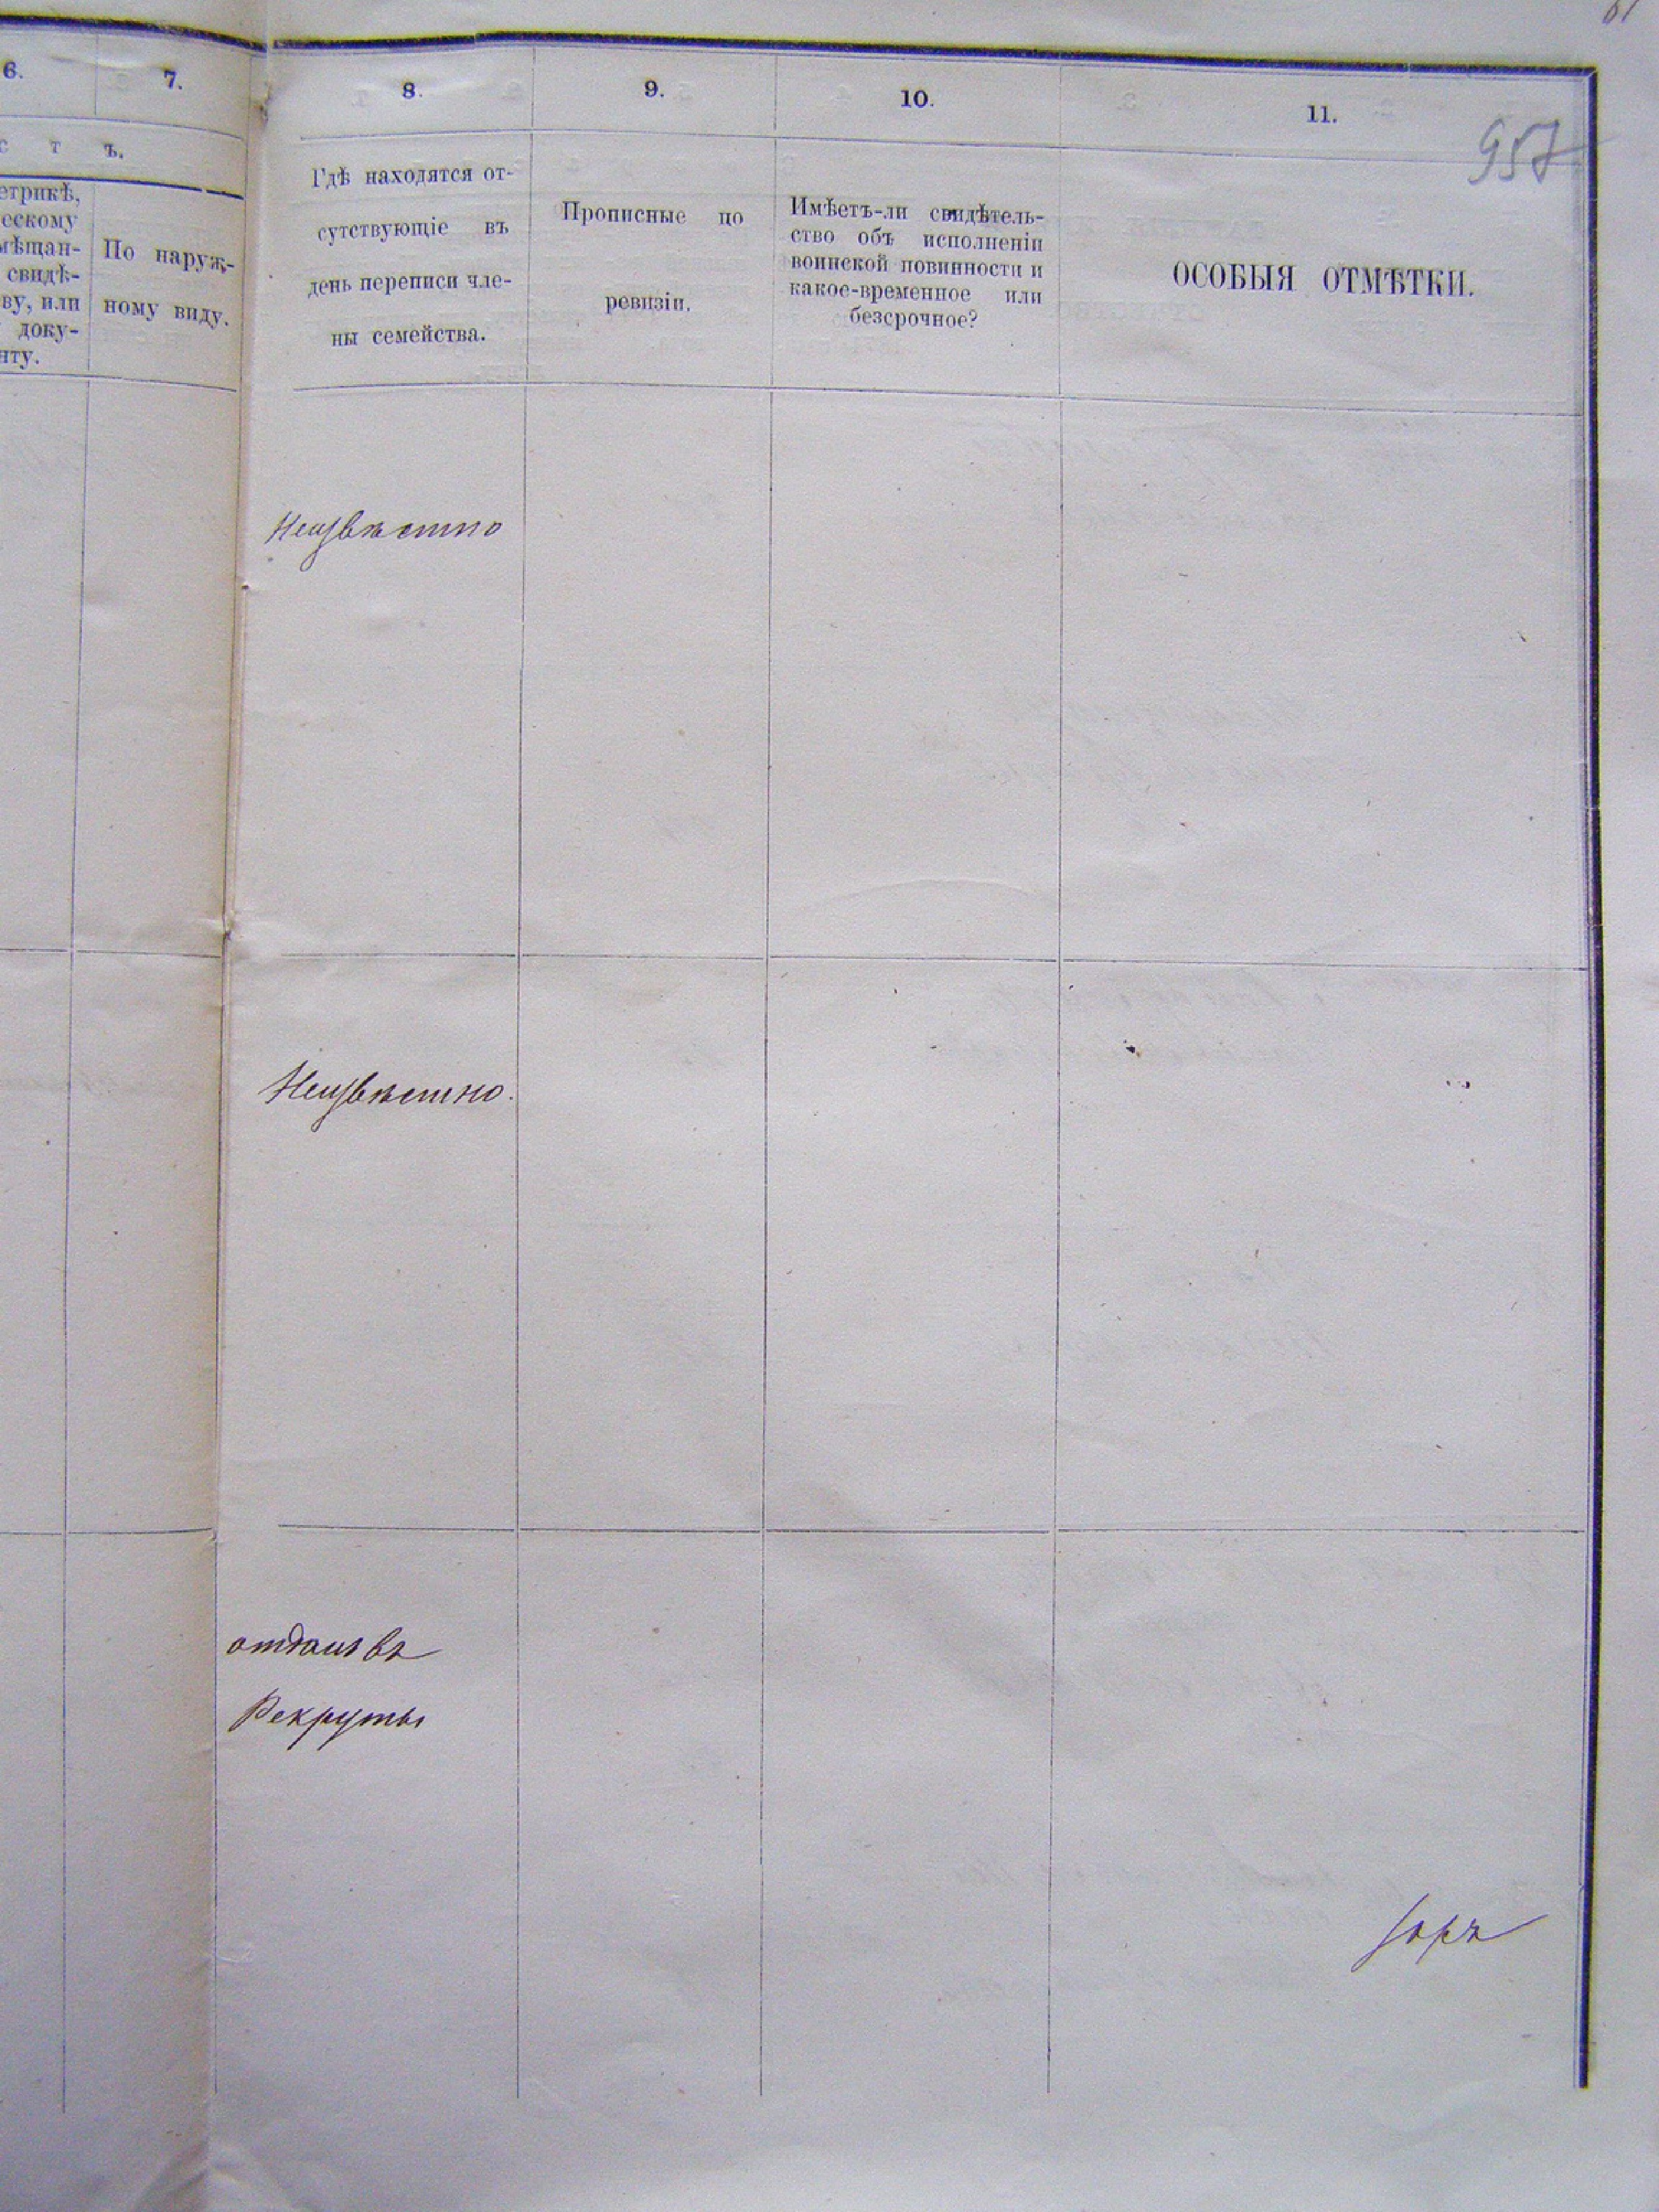 6.
7.
8.
9.
10.
11.
957
с т ъ.
етрикѣ,
ескому
мѣщан-
свидѣ-
ву, или
доку-
нту.
По наруж-
ному виду.
Гдѣ находятся от-
сутствующіе въ
день переписи чле-
ны семейства.
Прописные по
ревизіи.
Имѣетъ-ли свидѣтель-
ство объ исполненіи
воинской повинности и
какое-временное или
безсрочное?
ОСОБЫЯ ОТМѢТКИ.
Неизвѣстно
Неизвѣстно.
отданъ въ
Рекруты